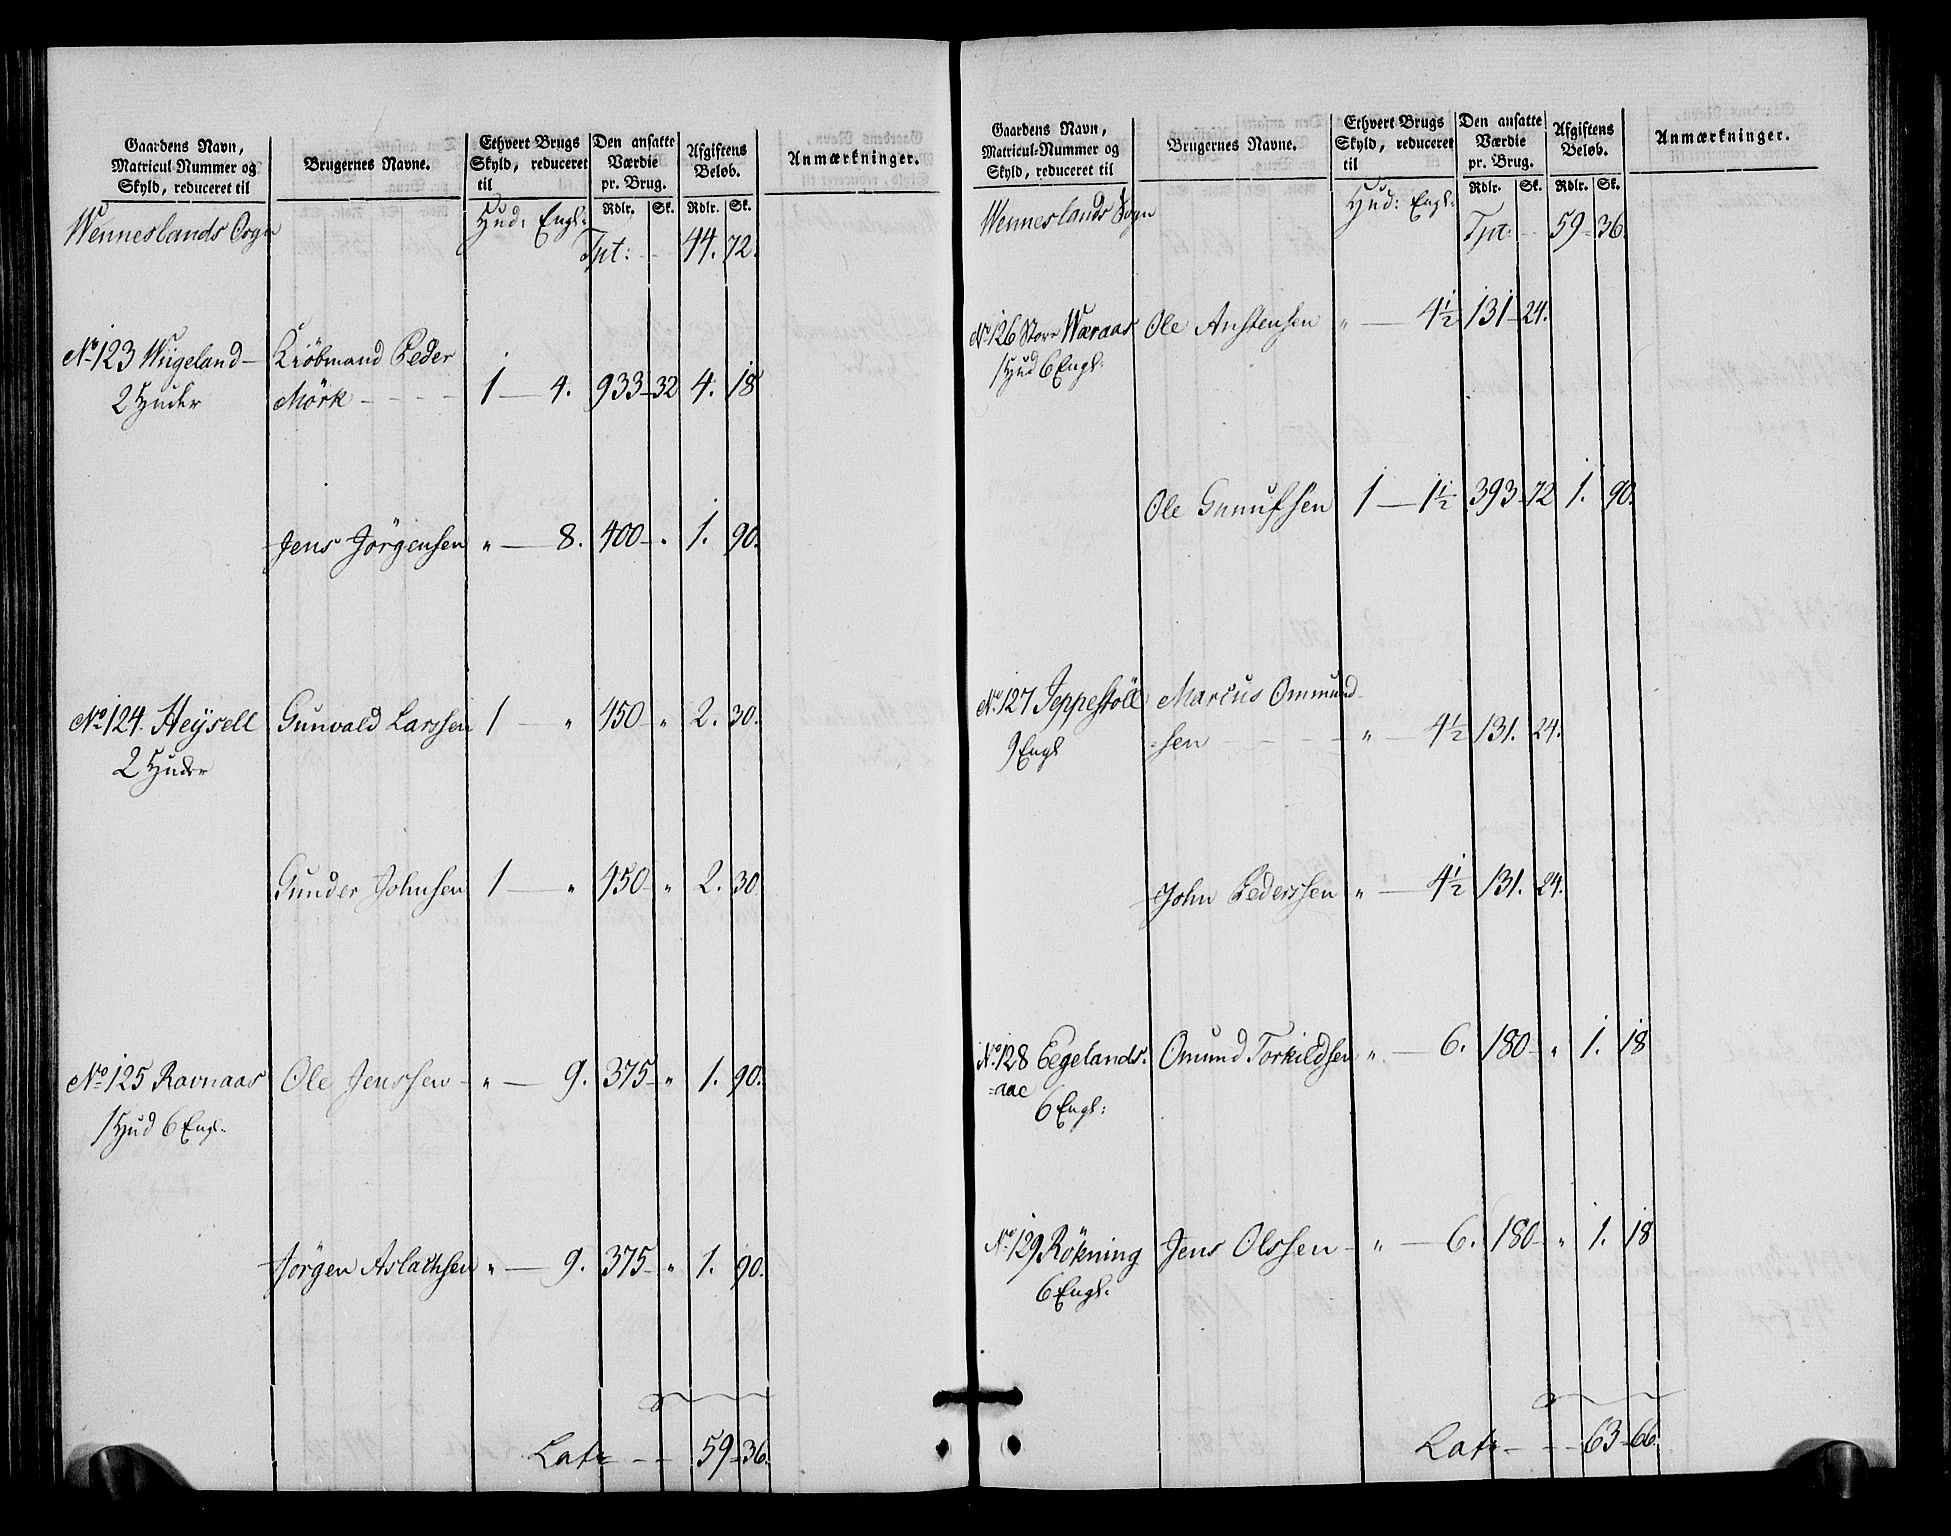 Gaardens Navn, Matricul-Nummer og Skyld, reduceret til | Brugernes Navne. | Ethvert Brugs Skyld, reduceret til | Den ansatte Værdie pr. Brug. | Afgiftens Beløb. | Anmærkninger.
Rdlr. Sk. Rdlr. Sk.
Wenneslands Sogn Hud: Engl:
Tpt: 44. 72.
No 123 Wiigeland Kiöbmand Peder
2 Huder Mörk 1 — 4. 933 - 32 4. 18
Jens Jörgensen " — 8. 400 - " 1. 90.
No 124. Heysell Gunvald Larssen 1 " 450 - " 2. 30.
2 Huder
Gunder Johnsen 1 — " 450 - " 2. 30
No 125 Ravnaas Ole Jenssen " — 9. 375 - " 1. 90.
1 Hud 6 Engl.
Jörgen Aslachsen " — 9. 375 - " 1. 90.
Lat: 59 - 36.
Gaardens Navn, Matricul-Nummer og Skyld, reduceret til | Brugernes Navne. | Ethvert Brugs Skyld, reduceret til | Den ansatte Værdie pr. Brug. | Afgiftens Beløb. | Anmærkninger.
Rdlr. Sk. Rdlr. Sk.
Wenneslands Sogn Hud: Engl:
Tpt: 59 - 36.
No 126 Store Waraas Ole Anstensen " — 4½ 131 - 24.
1 Hud 6 Engl:
Ole Gunnufsen 1 — 1½ 393 - 72 1. 90.
No 127 Jeppestöll Marcus Ommund
9 Engl =sen " — 4½ 131. 24.
John Pederssen " — 4½ 131. 24.
No 128 Eegelands= Omund Torkildsen " — 6. 180 - " 1. 18
=aae
6 Engl:
No 129 Rökning Jens Olssen " — 6. 180 - " 1. 18
6 Engl:
Lat: 63 - 66.